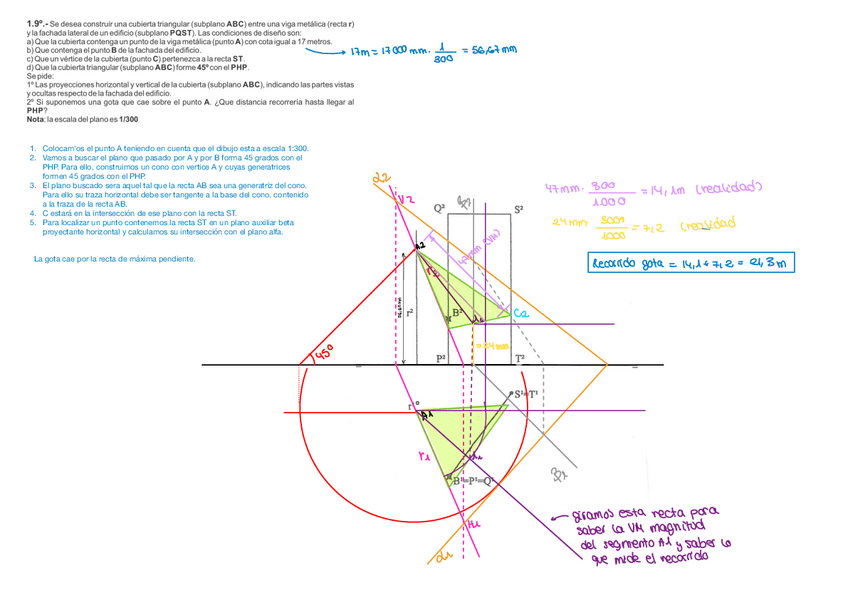 1.9º.- Se desea construir una cubierta triangular (subplano ABC) entre una viga metálica (recta r)
y la fachada lateral de un edificio (subplano PQST). Las condiciones de diseño son:
a) Que la cubierta contenga un punto de la viga metálica (punto A) con cota igual a 17 metros.
b) Que contenga el punto B de la fachada del edificio.
c) Que un vértice de la cubierta (punto C) pertenezca a la recta ST.
d) Que la cubierta triangular (subplano ABC) forme 45º con el PHP.
Se pide:
1º Las proyecciones horizontal y vertical de la cubierta (subplano ABC), indicando las partes vistas
y ocultas respecto de la fachada del edificio.
2º Si suponemos una gota que cae sobre el punto A. ¿Que distancia recorrería hasta llegar al
PHP?
Nota: la escala del plano es 1/300
17m = 17000 mm · 1/300 = 56,67mm
1. Colocam'os el punto A teniendo en cuenta que el dibujo esta a escala 1:300.
2. Vamos a buscar el plano que pasado por A y por B forma 45 grados con el
PHP. Para ello, construimos un cono con vertice A y cuyas generatrices
formen 45 grados con el PHP.
3. El plano buscado sera aquel tal que la recta AB sea una generatriz del cono.
Para ello su traza horizontal debe ser tangente a la base del cono, contenido
a la traza de la recta AB.
4. C estará en la intersección de ese plano con la recta ST.
5. Para localizar un punto contenemos la recta ST en un plano auxiliar beta
proyectante horizontal y calculamos su intersección con el plano alfa.
La gota cae por la recta de máxima pendiente.
47mm · 300/1000 = 14,1m (realidad)
24mm 300/1000 = 7,2 (realidad
Recorrido gota = 14,1 + 7,2 = 21,3m
α2
V2
β2
Q²
S²
A2
47 mm (VM)
r2
r²
B²
C2
= 24mm
45º
P²
T²
S¹=T¹
r¹
A1
r1
B¹=P¹=Q¹
β1
H1
α1
giramos esta recta para
saber la VM magnitud
del segmento A1 y saber lo
que mide el recorrido